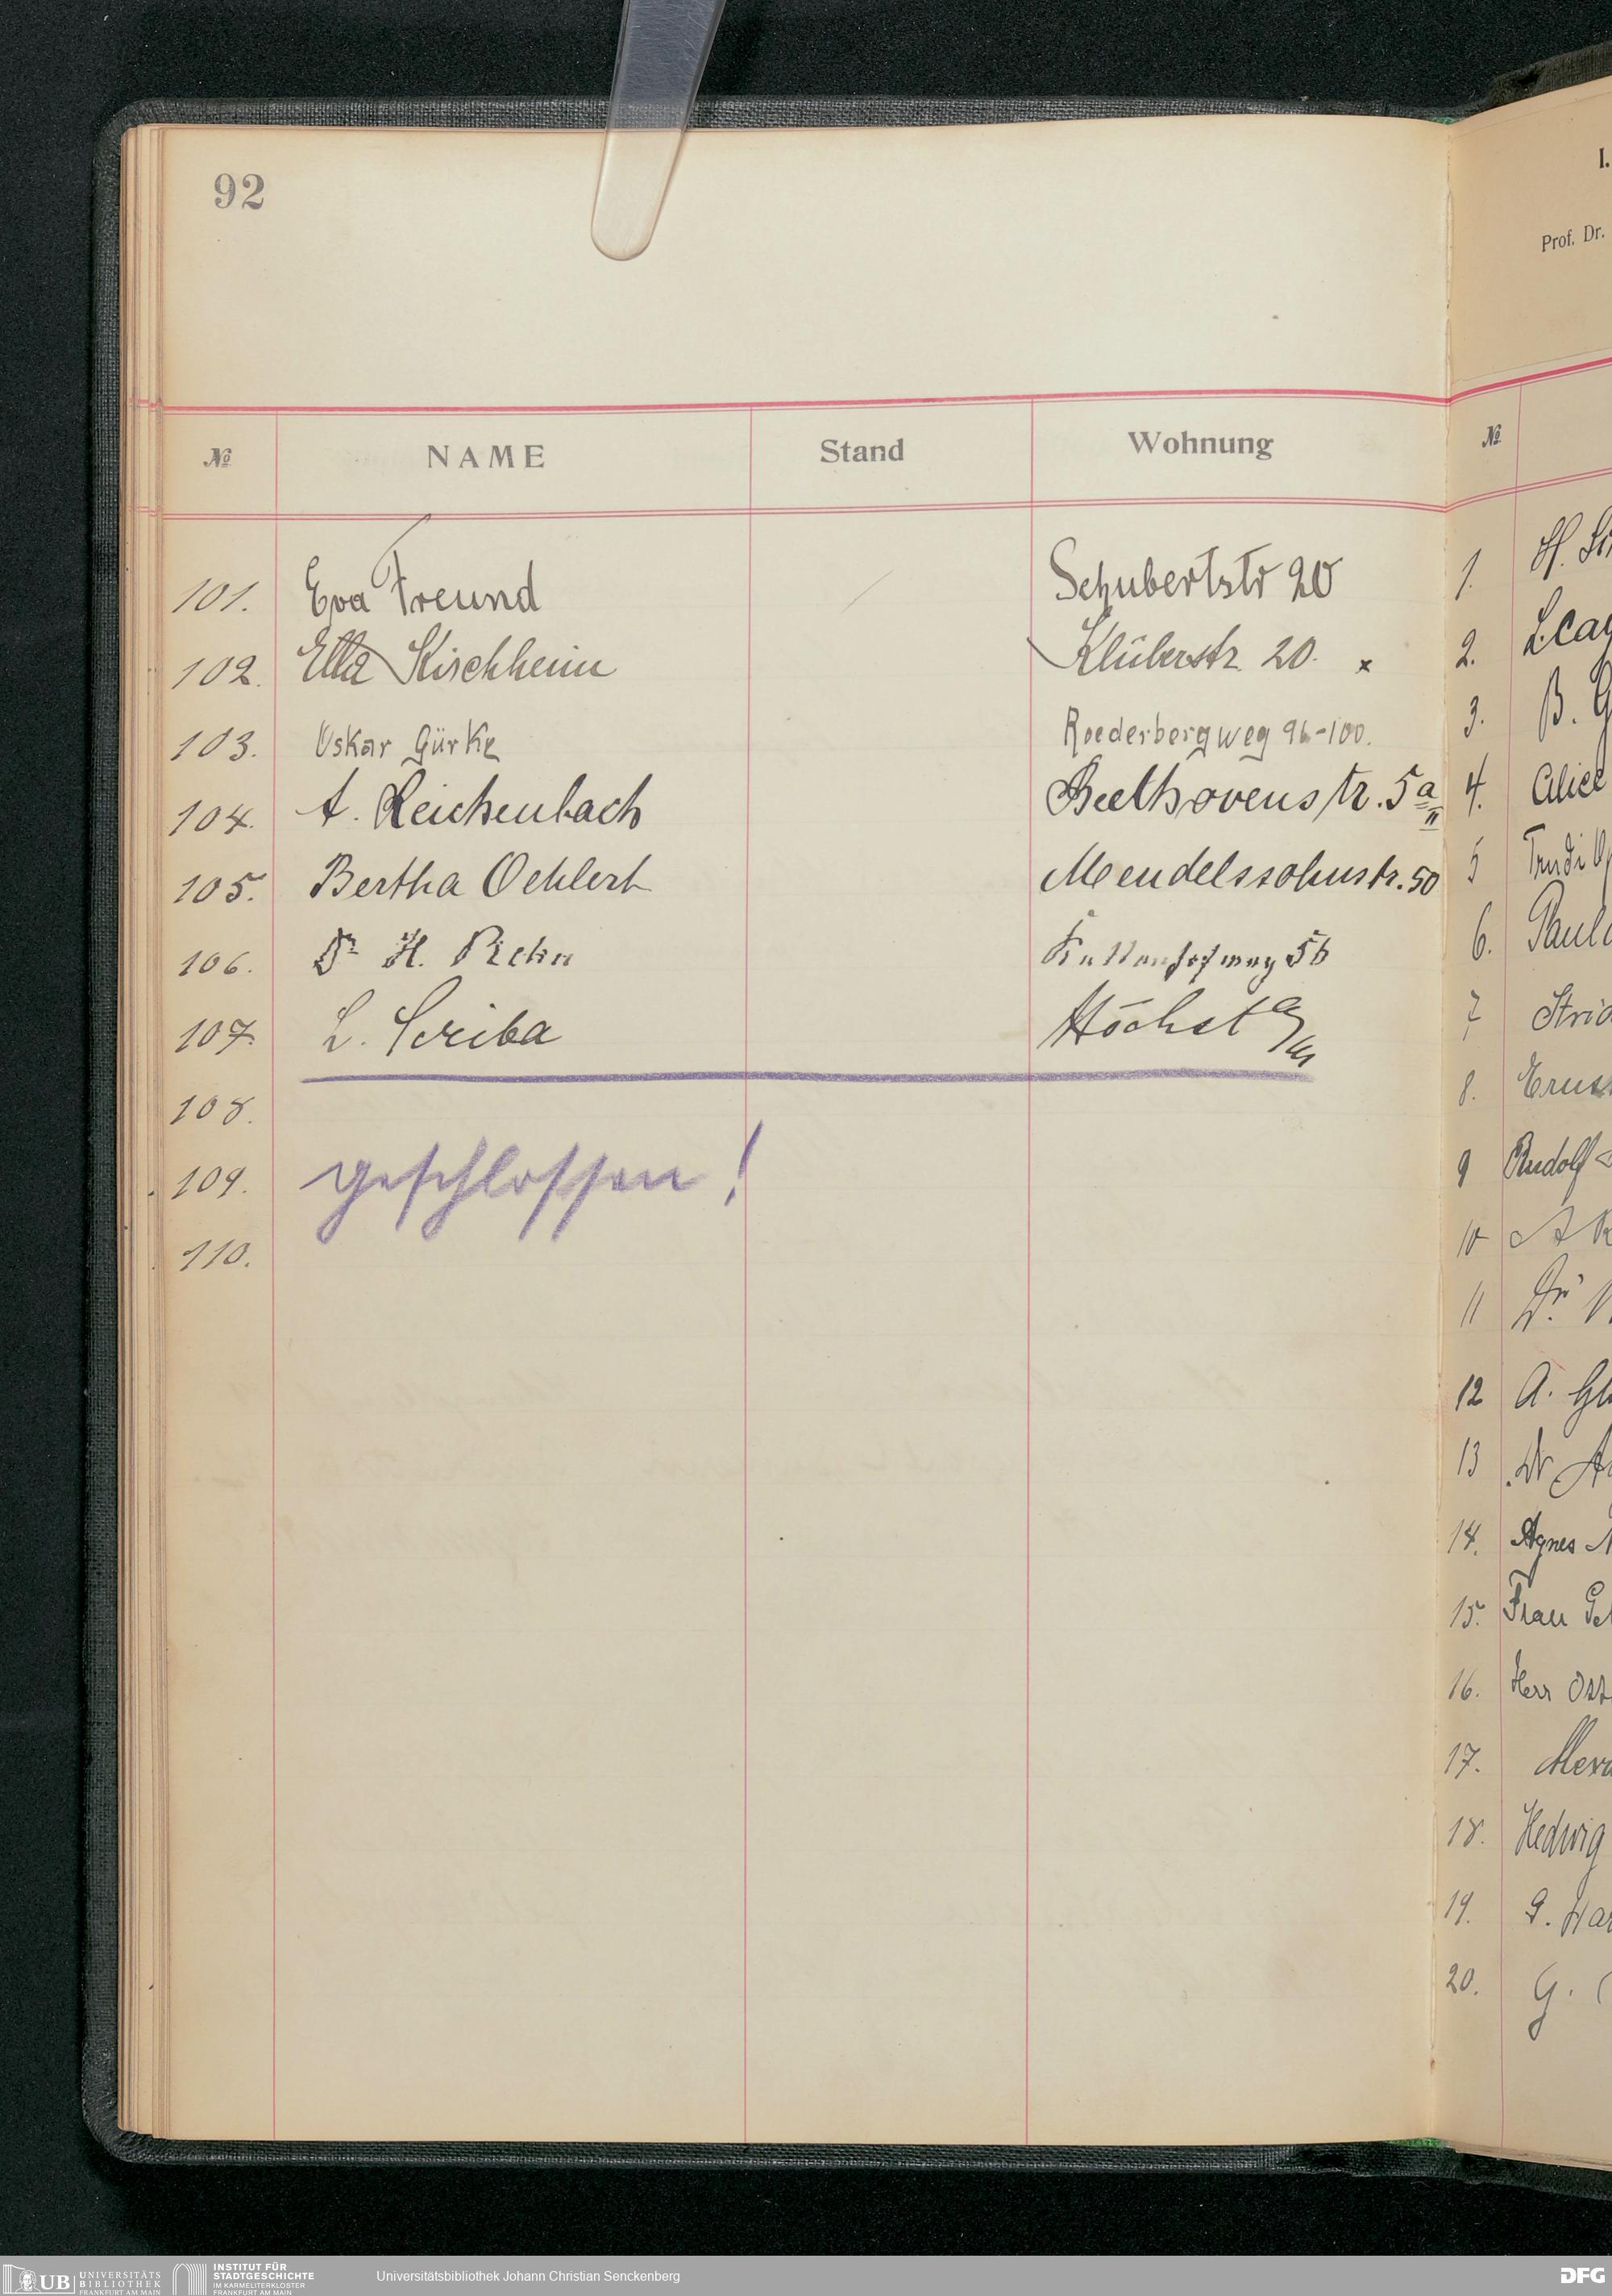 92
№ NAME Stand Wohnung
101. Eva Freund Schubertstr 20
102. Ella Kirchheim Klüberstr. 20. x
103. Oskar Gürke Roederbergweg 96-100.
104. A. Reichenbach Beethovenstr. 5a
105. Bertha Oehlert Mendelssohnstr. 50
106. Dr H. Rehn Kettenhofweg 56
107. L. Scriba Höchst a/M
108.
109. geschlossen!
110.
I.
Prof. Dr.
№
1. H.
2.
3. B. G
4. Alice
5 Trudi
6. Paul
7
8.
9 Rudolf
10
11 Dr.
12 A. Gl
13 Dr
14. Agnes
15. Frau
16. Herr
17.
18. Hedwig
19. G. Har
20. G.
UB UNIVERSITÄTS
BIBLIOTHEK
FRANKFURT AM MAIN
INSTITUT FÜR
STADTGESCHICHTE
IM KARMELITERKLOSTER
FRANKFURT AM MAIN
Universitätsbibliothek Johann Christian Senckenberg
DFG